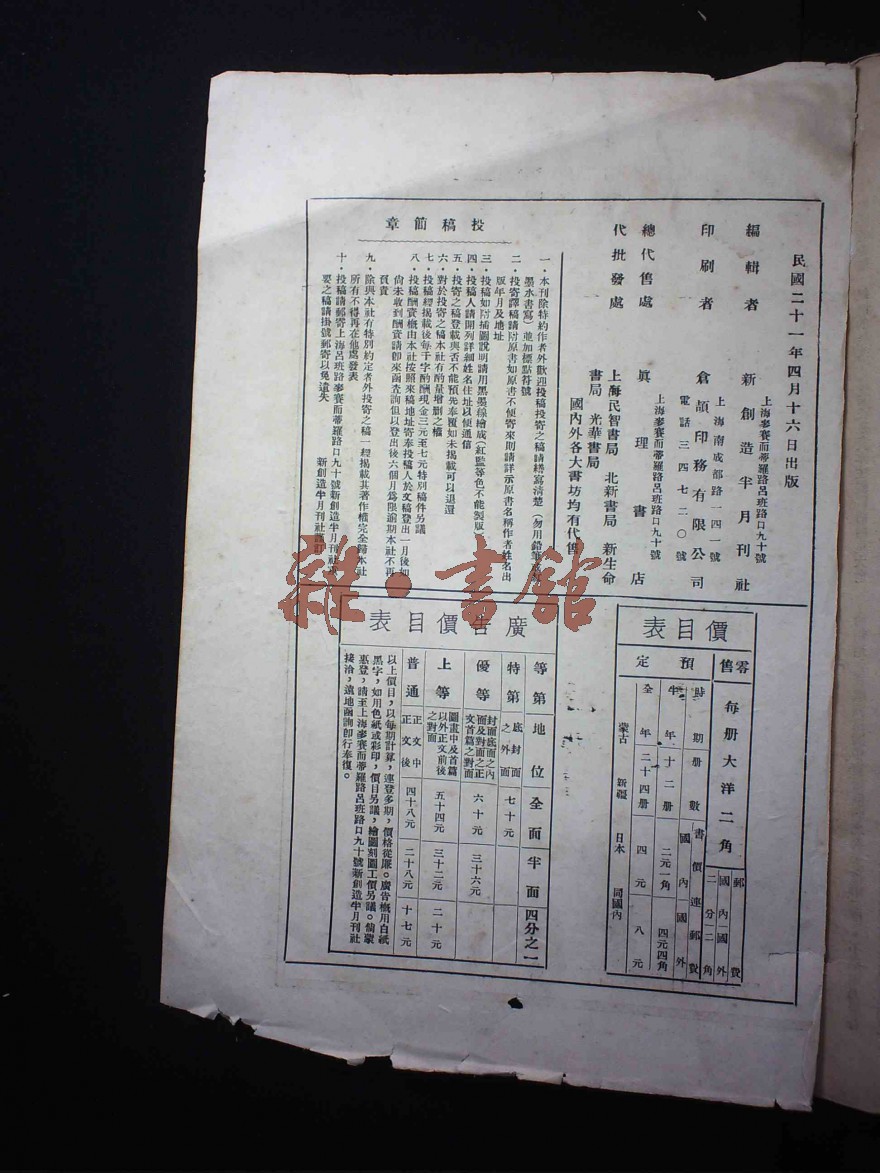 民國二十一年四月十六日出版
編輯者
上海麥賽而蒂羅路呂班路口九十號
新創造半月刊社
印刷者
上海南成都路一四一號
倉頡印務有限公司
電話三四七二〇號
總代售處
上海麥賽而蒂羅路呂班路口九十號
眞理書店
代批發處
上海民智書局 北新書局 新生命
書局 光華書局
國內外各大書坊均有代售
投稿簡章
一．本刊除特約作者外歡迎投稿投寄之稿請繕寫清楚（勿用鉛筆
墨水書寫）並加標點符號
二．投寄譯稿請附原書如原書不便寄來則請詳示原書名稱作者姓名出
版年月及地址
三．投稿如附插圖說明請用黑墨線繪成（紅藍等色不能製版
四．投稿人請開列詳細姓名住址以便通信
五．投寄之稿登載與否不能預先奉覆如未揭載可以退還
六．對於投寄之稿本社有酌量增刪之權
七．投稿經揭載後每千字酌酬現金三元至七元特別稿件另議
八．投稿酬資概由本社按照來稿地址寄奉投稿人於文稿登出一月後如
尙未收到酬資請卽來函查詢但以登出後六個月爲限逾期本社不再
負責
九．除與本社有特別約定者外投寄之稿一經揭載其著作權完全歸本社
所有不得再在他處發表
十．投稿請郵寄上海呂班路麥賽而蒂羅路口九十號新創造半月刊社
要之稿請掛號郵寄以免遺失
新創造半月刊社謹訂
價目表
零售 每册大洋二角 郵費
國內 二分 國外 二角
預定 時期 册數 書價連郵費
國內 國外
半年 十二册 二元一角 四元四角
全年 二十四册 四元 八元
蒙古 新疆 日本 同國內
廣告價目表
等第 地位 全面 半面 四分之一
特第 底封面之外面 七十元
優等 封面底面之內面及對面之正文首篇之對面 六十元 三十六元
上等 圖畫中及首篇以外正文前後之對面 五十四元 三十二元 二十元
普通 正文中正文後 四十八元 二十八元 十七元
以上價目，以每期計算，連登多期，價格從廉。廣告概用白紙
黑字，如用色紙或彩印，價目另議，繪圖刻圖工價另議。倘蒙
惠登，請至上海麥賽而蒂羅路呂班路口九十號新創造半月刊社
接洽，遠地函詢卽行奉復。
雜·書館